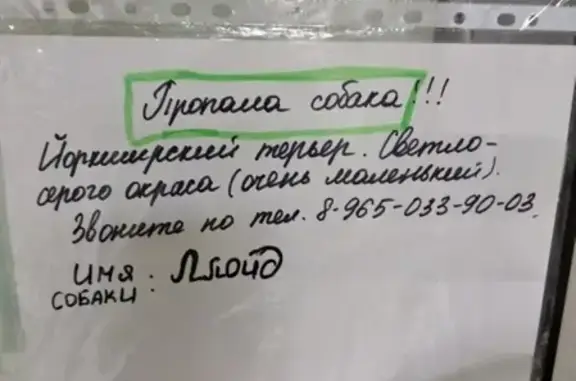 Пропала собака!!!
Йоркширский терьер. Светло-
серого окраса (очень маленький).
Звоните по тел. 8-965-033-90-03.
ИМЯ : Ллойд
СОБАКИ :